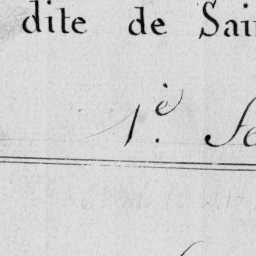 dite de Sai
1.è fe